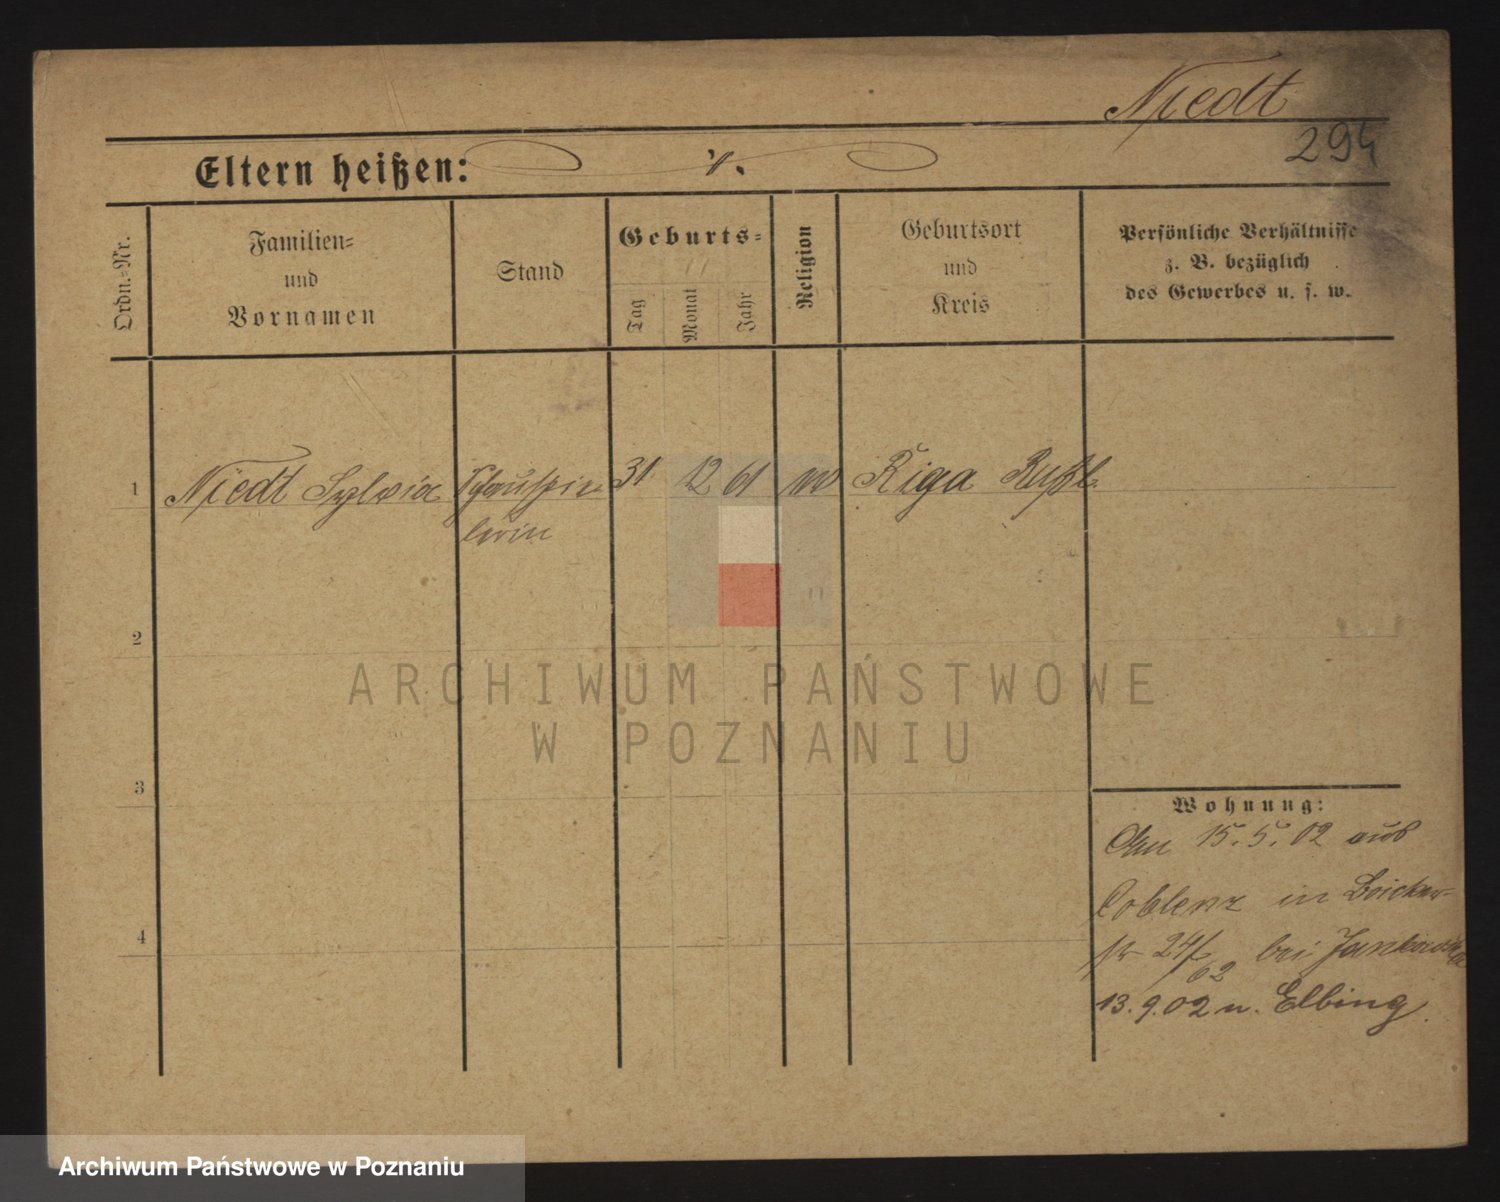 Niedt
294
Eltern heißen:
Ordn.-Nr.
Familien-
und
Vornamen
Stand
Geburts-
Tag
Monat
Jahr
Religion
Geburtsort
und
Kreis
Persönliche Verhältnisse
z. B. bezüglich
des Gewerbes u. s. w.
1 Niedt Sylvia Schauspie- 31 12 61 Riga Rußl.
lerin
2
3
4
Wohnung:
15.5.02 aus
Coblenz in
24/62 bei
13.9.02 n. Elbing
ARCHIWUM PAŃSTWOWE
W POZNANIU
Archiwum Państwowe w Poznaniu